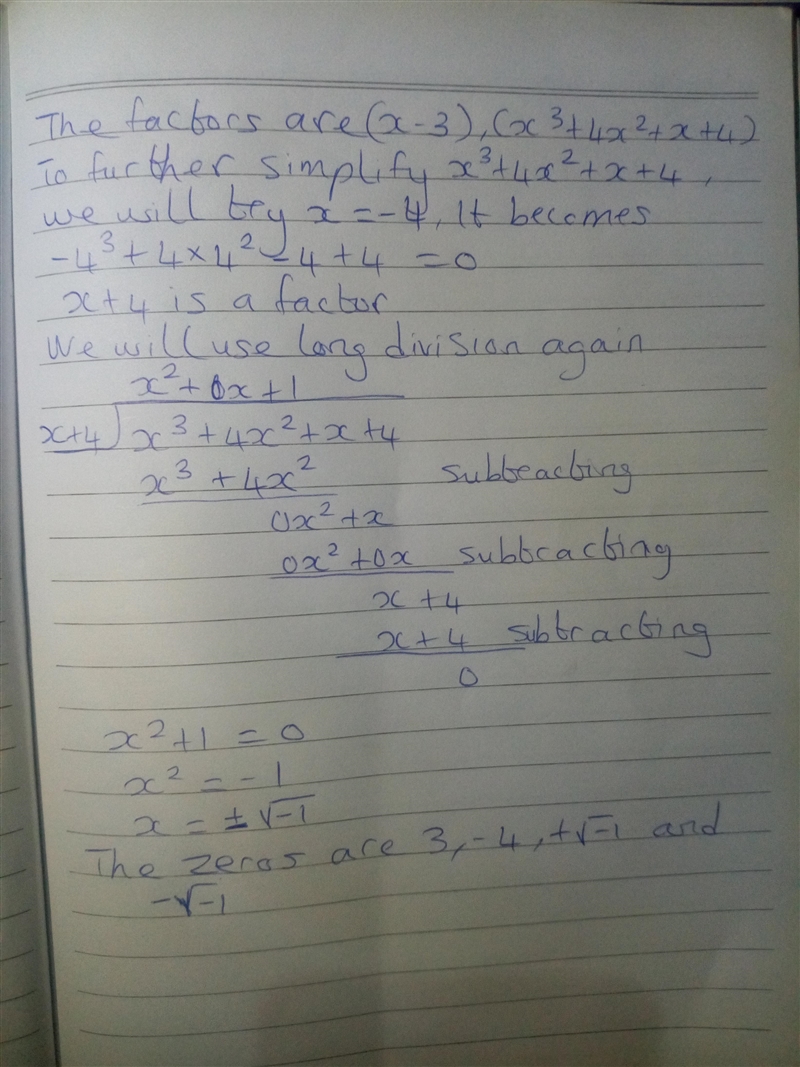 The factors are (x-3), (x³+4x²+x+4)
To further simplify x³+4x²+x+4,
we will try x = -4, It becomes
-4³ + 4×4² - 4 + 4 = 0
x+4 is a factor
We will use long division again
x² + 0x + 1
x+4 ) x³ + 4x² + x + 4
x³ + 4x² subtracting
0x² + x
0x² + 0x subtracting
x + 4
x + 4 subtracting
0
x² + 1 = 0
x² = -1
x = ±√-1
The zeros are 3, -4, +√-1 and
-√-1